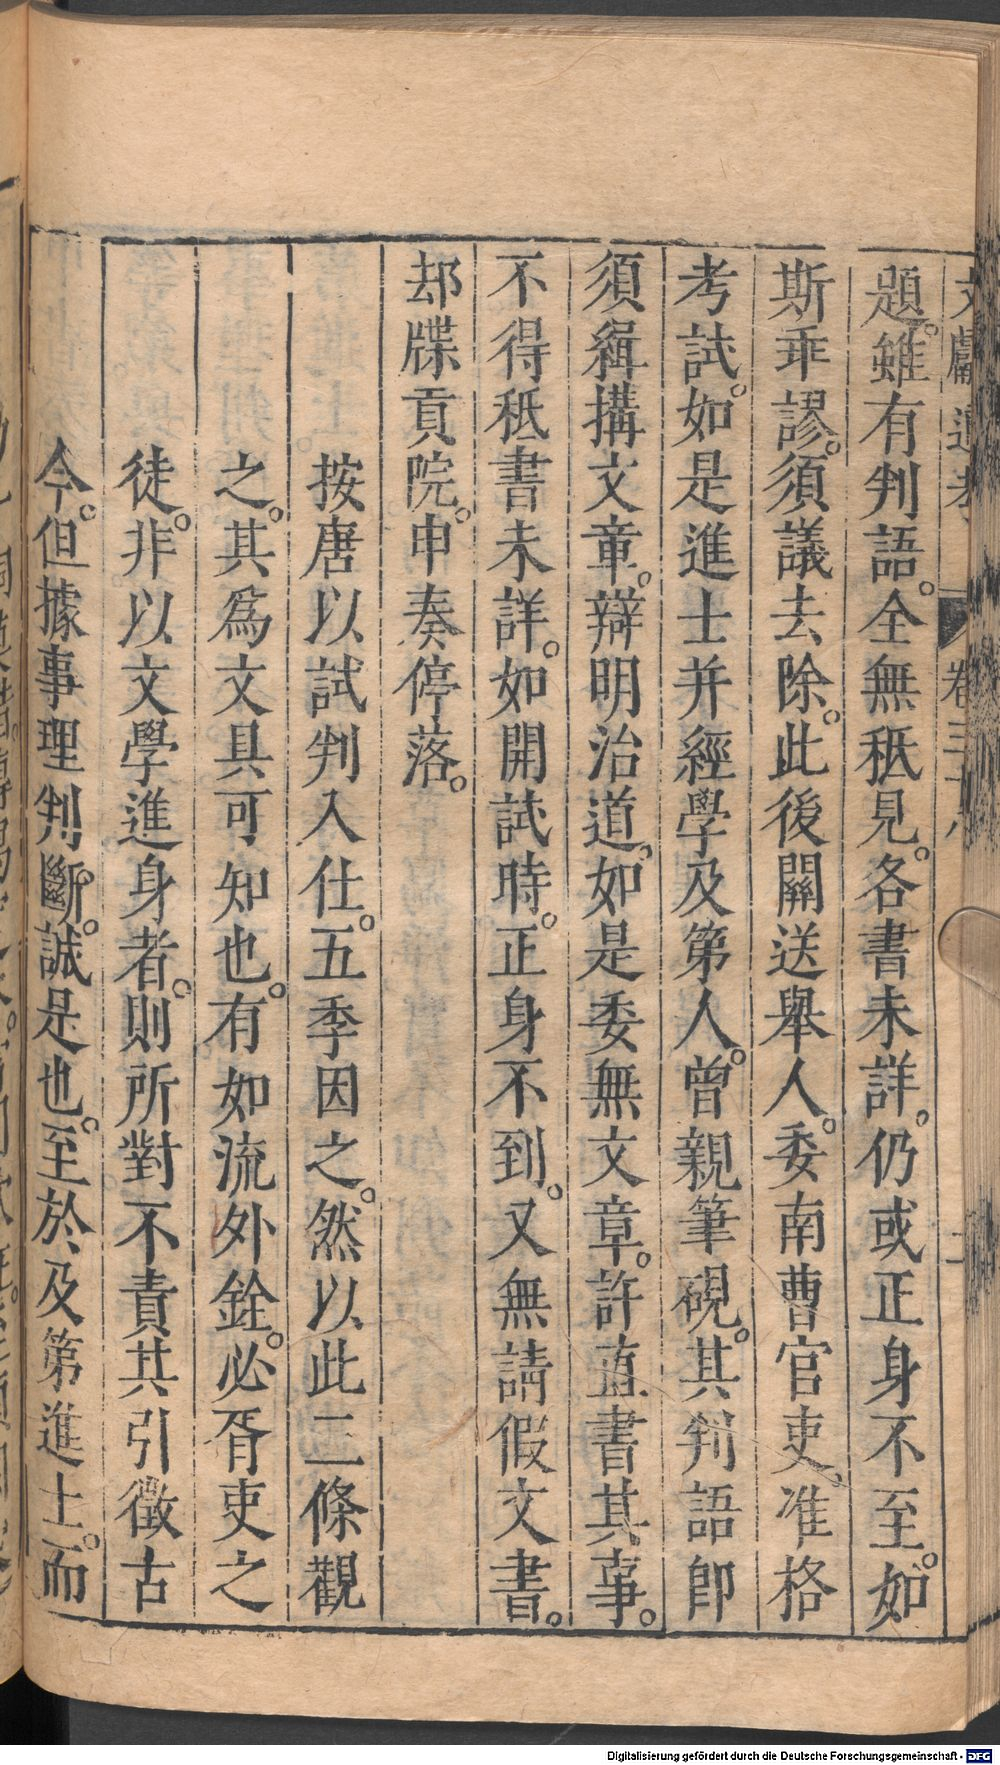 文獻通考 卷三十八 二
題。雖有判語。全無秪見。各書未詳。仍或正身不至。如
斯乖謬。須議去除。此後關送舉人。委南曹官吏。准格
考試。如是進士并經學及第人。曾親筆硯。其判語卽
須緝搆文章。辯明治道。如是委無文章。許直書其事。
不得秪書未詳。如開試時。正身不到。又無請假文書。
却牒貢院。申奏停落。
按唐以試判入仕。五季因之。然以此二條觀
之。其爲文具可知也。有如流外銓。必胥吏之
徒。非以文學進身者。則所對不責其引徵古
今。但據事理判斷。誠是也。至於及第進士。而
Digitalisierung gefördert durch die Deutsche Forschungsgemeinschaft - DFG